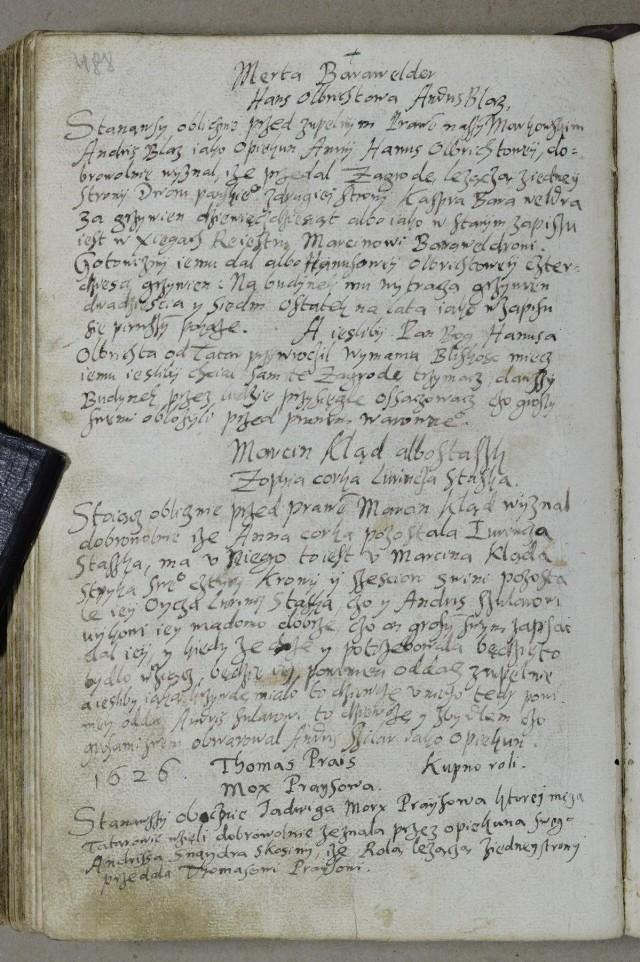 488
Merta Barawelder
Hans Olbrichtowa Andris Blaz,
Stanawsy oblicznie przed zupelnym Prawe naszy Markowskim
Andris Blaz iako Opiekun Anny Hanus Olbrichtowey, do-
browolnie wyznal, ize przedal Zagrode, lezącza ziedney
strony zdrugiej strony Kaspra Baraweldra
za grziwien dziewięcdziesząt albo iako w starym zapisu
iest w Xięgach Reiestru Marcinowi Baraweldroni.
Gotowizny iemu dal albo Hanusowey Olbrichtowey czter-
dziesci grziwien: Na budynek mu wytrącza grziwien
dwadziescia y siedm ostatek na lata iako w zapisu
się pirwszy pokaże. A iesliby Pan Bog Hanusa
Olbrichta od Tatar przywrocil Wymawia Bliskosc miecz
iemu iesliby chcial sam te Zagrode trzymacz dawszy
Budynek przez ludzie przysięzle oszacowacz czo groszy
obłozyli przed prawem
Marcin Kląd albo Staszk
Zophia corka Lurincza Staszka.
Stoiącz oblicznie przed prawe Marcin Kląd wyznal
dobrowolnie ize Anna corka pozostala Lurincza
Staszka, ma v Niego to iest v Marcina Klądа
Stryka cztyry Krowy y szescioro swini pozosta
le iey Oycza Lurincz Staszka, czo y Andris Szularowi
iey wiadomo dobrze, czo on groszy zapisac
dal iey, y kiedy ze y potrzebowala będzie to
bydlo wziącz, będzie iey powinien oddacz zupelnie
a iesliby iaka krzywde mialo to dziewcze v niego tedy powi
nien oddac Andris Sularowi to dziewcze y zbydlem czo
groszami obwarowal Andris Szular iako Opiekun.
1626. Thomas Prais Kupno roli.
Morx Praysowa.
Stanawszy oblicznie Jadwiga Morx Praysowa ktorej męża
Tatarowie wzieli dobrowolnie zeznala przez opiekuna swego
Andrissa Sznaydra ize Rola lezącza ziedney strony
przedala Thomasowi Praysowi.